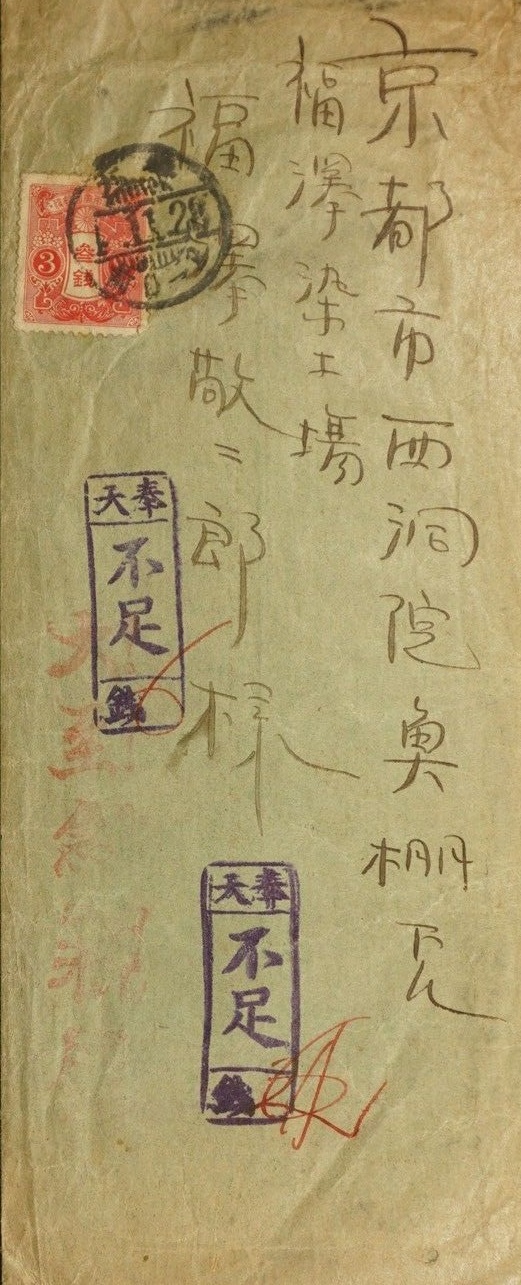 京都市西洞院魚棚下ル
福澤染工場
福澤敬二郎様
3
参銭
28
奉天
不足
銭
奉天
不足
銭